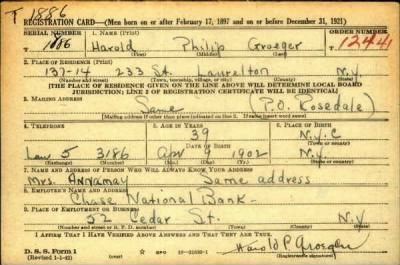 T 1886
REGISTRATION CARD—(Men born on or after February 17, 1897 and on or before December 31, 1921)
SERIAL NUMBER 1. NAME (Print) ORDER NUMBER
1886 Harold Philip Groeger 12441
(First) (Middle) (Last)
2. PLACE OF RESIDENCE (Print)
137-14 233 St. Laurelton N.Y.
(Number and street) (Town, township, village, or city) (County) (State)
[THE PLACE OF RESIDENCE GIVEN ON THE LINE ABOVE WILL DETERMINE LOCAL BOARD
JURISDICTION; LINE 2 OF REGISTRATION CERTIFICATE WILL BE IDENTICAL]
3. MAILING ADDRESS
Same (P.O. Rosedale)
[Mailing address if other than place indicated on line 2. If same insert word same]
4. TELEPHONE 5. AGE IN YEARS 6. PLACE OF BIRTH
39 N.Y.C
DATE OF BIRTH
Lau 5 3186 Apr 9 1902 N.Y.
(Exchange) (Number) (Mo.) (Day) (Yr.) (State or country)
7. NAME AND ADDRESS OF PERSON WHO WILL ALWAYS KNOW YOUR ADDRESS
Mrs. Annamay Same address
8. EMPLOYER'S NAME AND ADDRESS
Chase National Bank
9. PLACE OF EMPLOYMENT OR BUSINESS
52 Cedar St. N.Y
(Number and street or R. F. D. number) (Town) (County) (State)
I AFFIRM THAT I HAVE VERIFIED ABOVE ANSWERS AND THAT THEY ARE TRUE.
D. S. S. Form 1
(Revised 1-1-42) GPO Harold P. Groeger
(Registrant's signature)